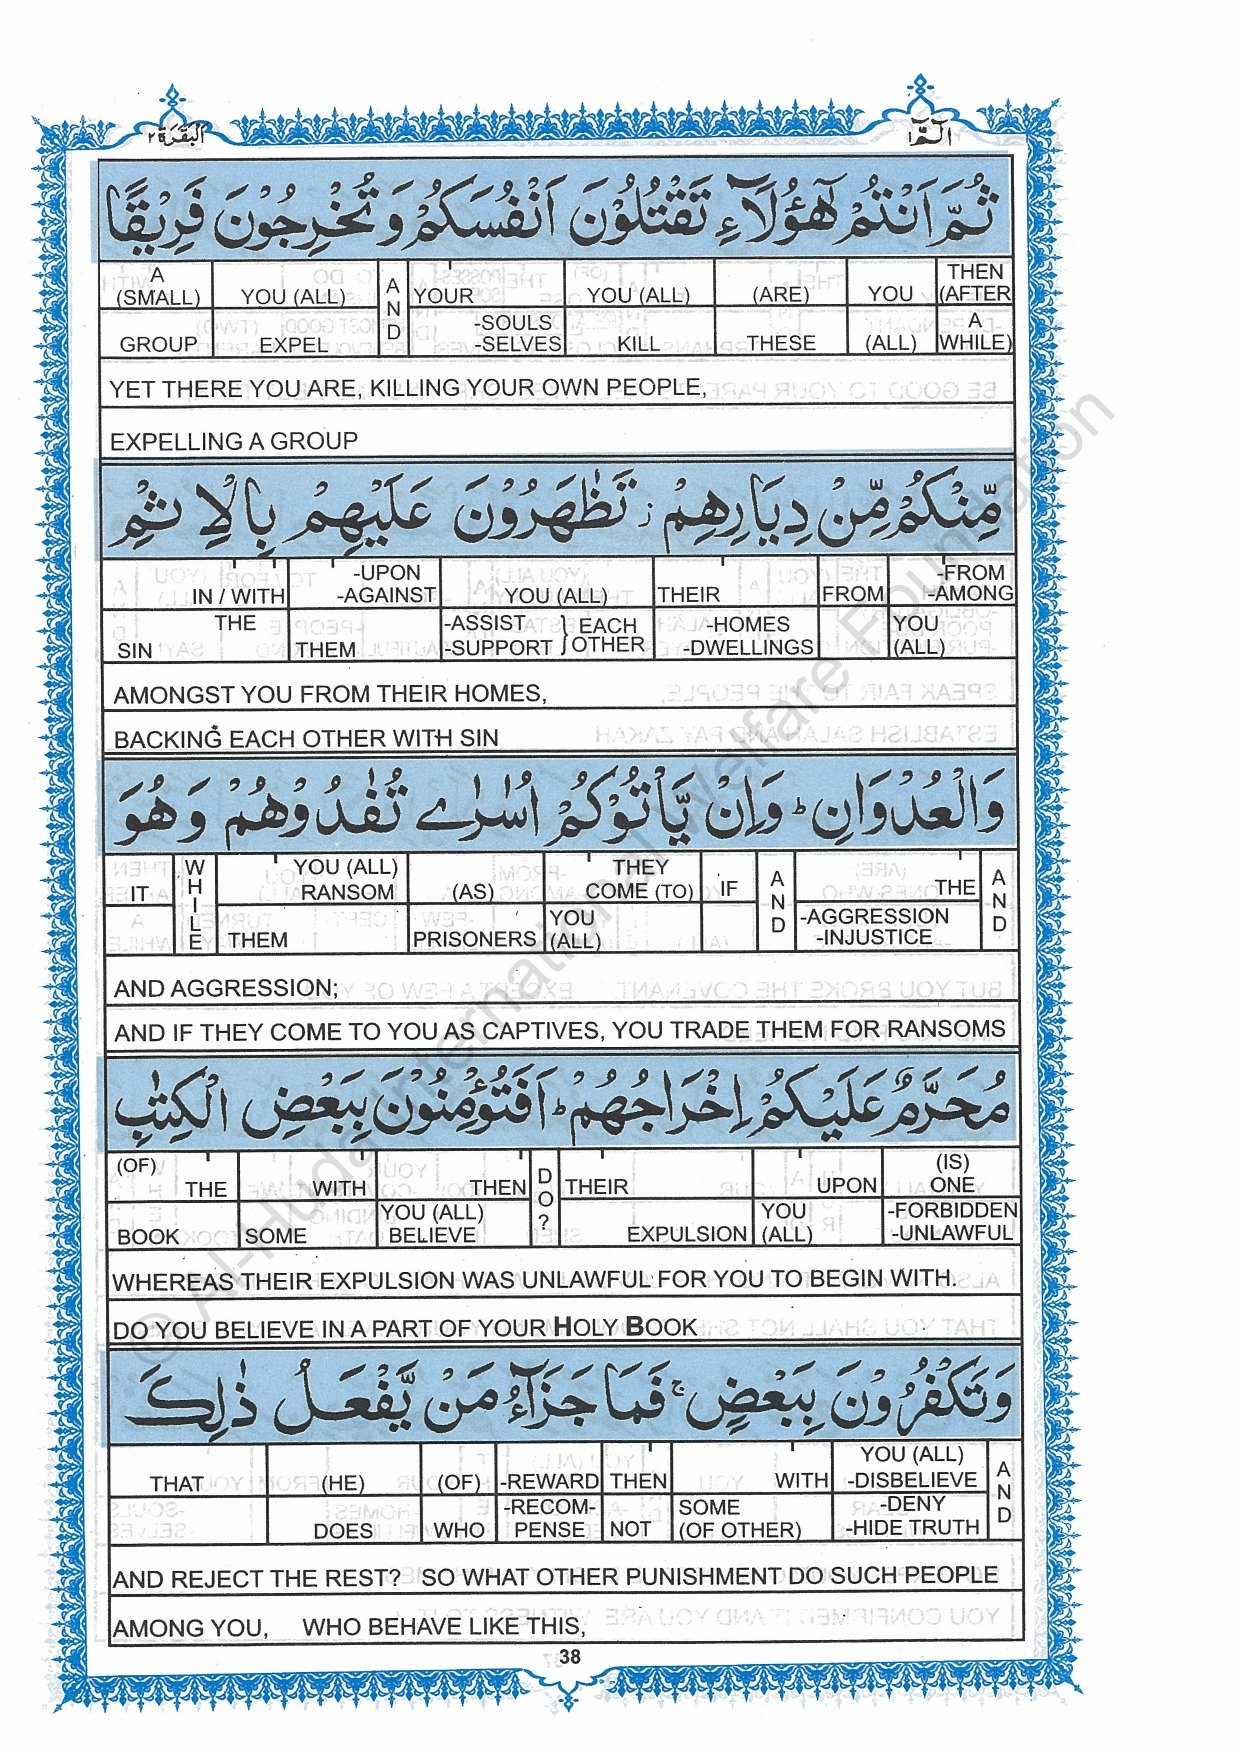 الٓمّٓ ١
البقرة ٢
ثُمَّ اَنْتُمْ هٰٓؤُلَآءِ تَقْتُلُوْنَ اَنْفُسَكُمْ وَ تُخْرِجُوْنَ فَرِيْقًا
A (SMALL) | YOU (ALL) | AND | YOUR | YOU (ALL) | (ARE) | YOU | THEN (AFTER
GROUP | EXPEL | -SOULS -SELVES | KILL | THESE | (ALL) | A WHILE)
YET THERE YOU ARE, KILLING YOUR OWN PEOPLE,
EXPELLING A GROUP
مِّنْكُمْ مِّنْ دِيَارِهِمْ ز تَظٰهَرُوْنَ عَلَيْهِمْ بِالْاِثْمِ
IN / WITH | -UPON -AGAINST | YOU (ALL) | THEIR | FROM | -FROM -AMONG
THE SIN | THEM | -ASSIST -SUPPORT } EACH OTHER | -HOMES -DWELLINGS | YOU (ALL)
AMONGST YOU FROM THEIR HOMES,
BACKING EACH OTHER WITH SIN
وَالْعُدْوَانِ ؕ وَاِنْ يَّاْتُوْكُمْ اُسٰرٰى تُفٰدُوْهُمْ وَهُوَ
IT | WHILE | YOU (ALL) RANSOM | (AS) | THEY COME (TO) | IF | AND | THE | AND
THEM | PRISONERS | YOU (ALL) | -AGGRESSION -INJUSTICE
AND AGGRESSION;
AND IF THEY COME TO YOU AS CAPTIVES, YOU TRADE THEM FOR RANSOMS
مُحَرَّمٌ عَلَيْكُمْ اِخْرَاجُهُمْ ؕ اَفَتُؤْمِنُوْنَ بِبَعْضِ الْكِتٰبِ
(OF) THE | WITH | THEN | DO? | THEIR | UPON | (IS) ONE
BOOK | SOME | YOU (ALL) BELIEVE | EXPULSION | YOU (ALL) | -FORBIDDEN -UNLAWFUL
WHEREAS THEIR EXPULSION WAS UNLAWFUL FOR YOU TO BEGIN WITH.
DO YOU BELIEVE IN A PART OF YOUR HOLY BOOK
وَتَكْفُرُوْنَ بِبَعْضٍ ۚ فَمَا جَزَآءُ مَنْ يَّفْعَلُ ذٰلِكَ
THAT | (HE) | (OF) | -REWARD | THEN | WITH | YOU (ALL) -DISBELIEVE | AND
DOES | WHO | -RECOM- PENSE | NOT | SOME (OF OTHER) | -DENY -HIDE TRUTH
AND REJECT THE REST? SO WHAT OTHER PUNISHMENT DO SUCH PEOPLE
AMONG YOU, WHO BEHAVE LIKE THIS,
38
© Al-Huda International Welfare Foundation